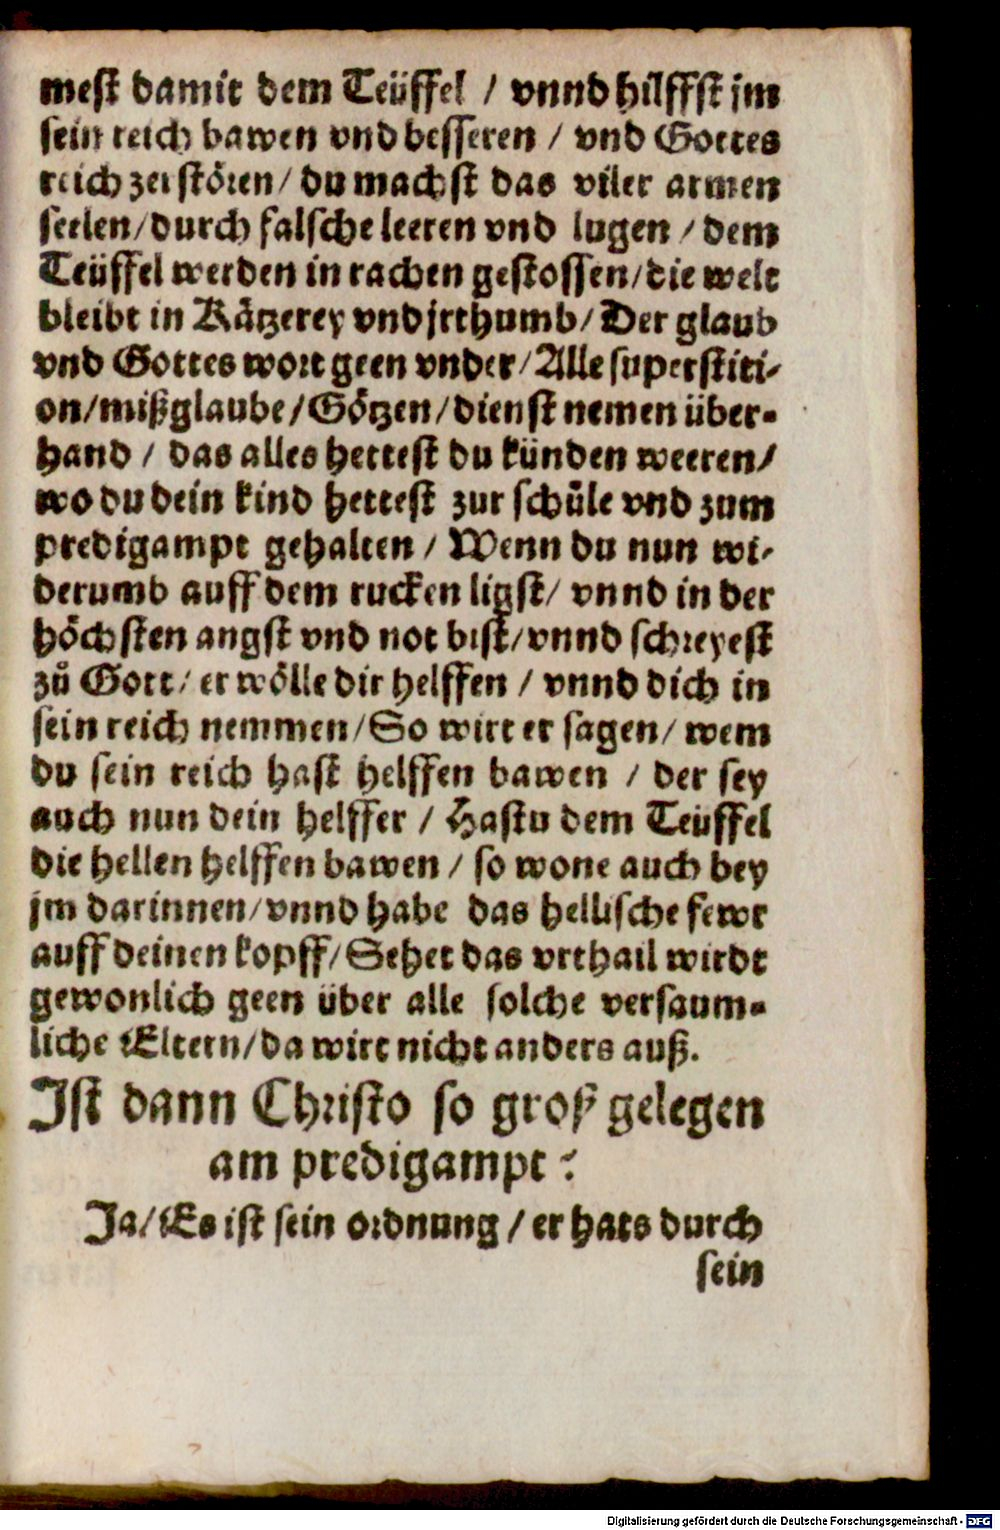 mest damit dem Teüffel / vnnd hilffst jm
sein reich bawen vnd besseren / vnd Gottes
reich zerstören / du machst das viler armen
seelen / durch falsche leeren vnd lugen / dem
Teüffel werden in rachen gestossen / die welt
bleibt in Kätzerey vnd jrthumb / Der glaub
vnd Gottes wort geen vnder / Alle superstiti-
on / mißglaube / Götzen / dienst nemen über-
hand / das alles hettest du künden weeren /
wo du dein kind hettest zur schůle vnd zum
predigampt gehalten / Wenn du nun wi-
derumb auff dem rucken ligst / vnnd in der
höchsten angst vnd not bist / vnnd schreyest
zů Gott / er wölle dir helffen / vnnd dich in
sein reich nemmen / So wirt er sagen / wem
du sein reich hast helffen bawen / der sey
auch nun dein helffer / Hastu dem Teüffel
die hellen helffen bawen / so wone auch bey
jm darinnen / vnnd habe das hellische fewr
auff deinen kopff / Sehet das vrthail wirdt
gewonlich geen über alle solche versaum-
liche Eltern / da wirt nicht anders auß.
Ist dann Christo so groß gelegen
am predigampt?
Ja / Es ist sein ordnung / er hats durch
sein
Digitalisierung gefördert durch die Deutsche Forschungsgemeinschaft - DFG